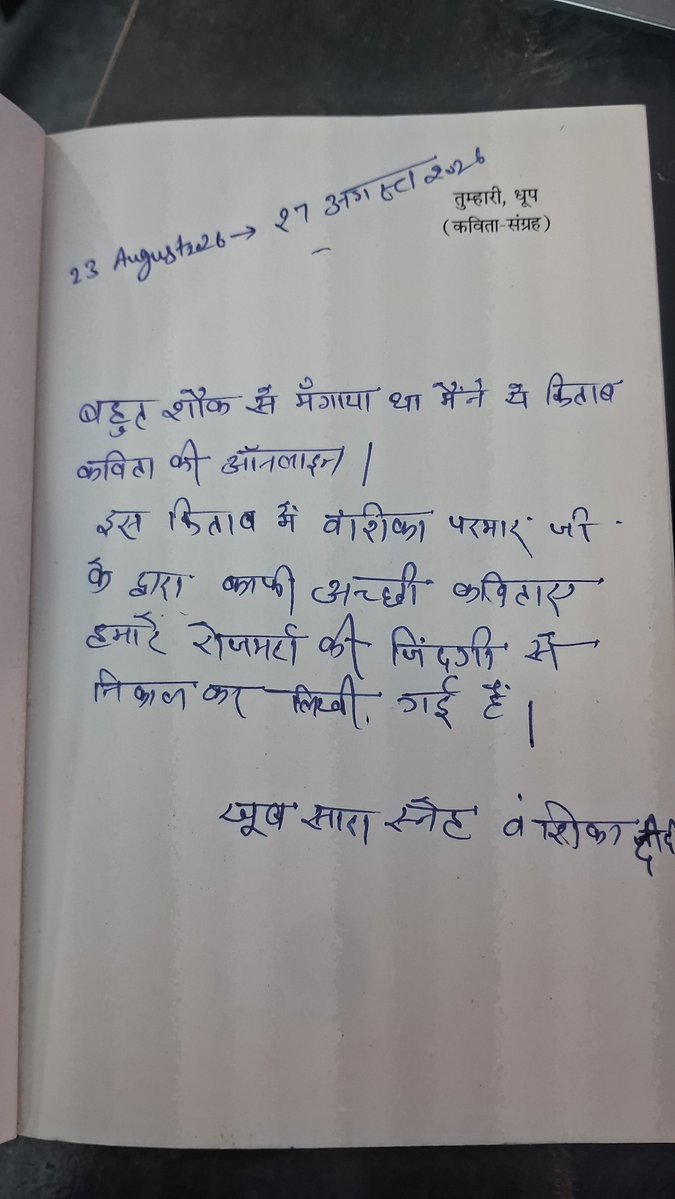 तुम्हारी, धूप
(कविता-संग्रह)
23 August 2026 → 27 अगस्त 2026
बहुत शौक से मँगाया था मैंने ये किताब
कविता की ऑनलाइन।
इस किताब में वंशिका परमार जी
के द्वारा काफी अच्छी कविताए
हमारे रोजमर्रा की जिंदगी से
निकाल कर लिखी गई हैं।
खूब सारा स्नेह वंशिका दीदी